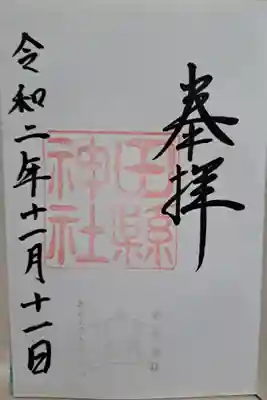 奉拝
田縣神社
令和二年十一月十一日